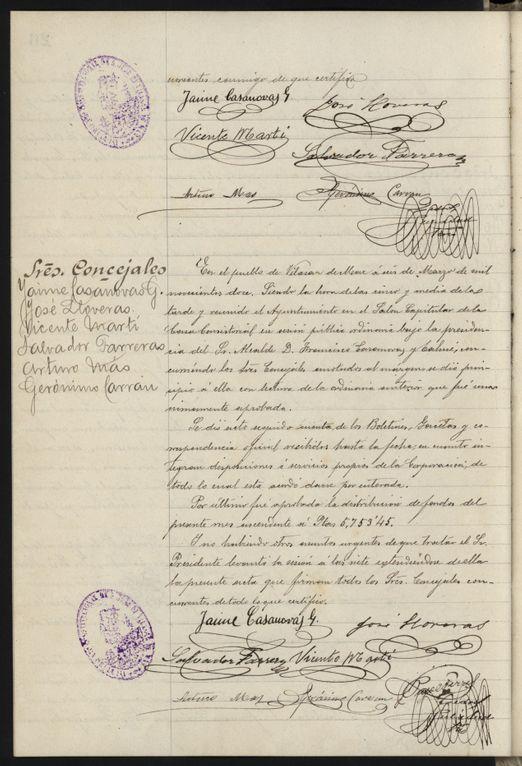 currentes conmigo de que certifica
Jaime Casanovas G.
José Lloveras
Vicente Martí
Salvador Farreras
Arturo Mas
Gerónimo Carrau
Sres. Concejales
Jaime Casanovas G.
José Lloveras
Vicente Martí
Salvador Farreras
Arturo Más
Gerónimo Carrau
En el pueblo de Vilasar de Mar á seis de Marzo de mil
novecientos doce. Siendo la hora de las cinco y media de la
tarde y reunido el Ayuntamiento en el Salon Capitular de la
Casa Consistorial en sesión pública ordinaria bajo la presiden-
cia del Sr. Alcalde D. Francisco Casanovas y con-
curriendo los Sres Concejales anotados al margen se dió prin-
cipio á ella con lectura de la ordinaria anterior que fué una-
nimamente aprobada.
Se dió acto seguido cuenta de los Boletines, Gacetas y co-
rrespondencia oficial recibidos hasta la fecha; en cuanto in-
tegran disposiciones ó servicios propios de la Corporación, de
todo lo cual esta acordó darse por enterada.
Por último fué aprobada la distribución de fondos del
presente mes ascendente á Ptas 6,753'45.
Y no habiendo otros asuntos urgentes de que tratar el Sr.
Presidente levantó la sesión á las siete extendiéndose de ella
la presente acta que firman todos los Sres. Concejales con-
currentes de todo lo que certifico.
Jaime Casanovas G.
José Lloveras
Salvador Farreras Vicente Martí
Arturo Mas Gerónimo Carrau